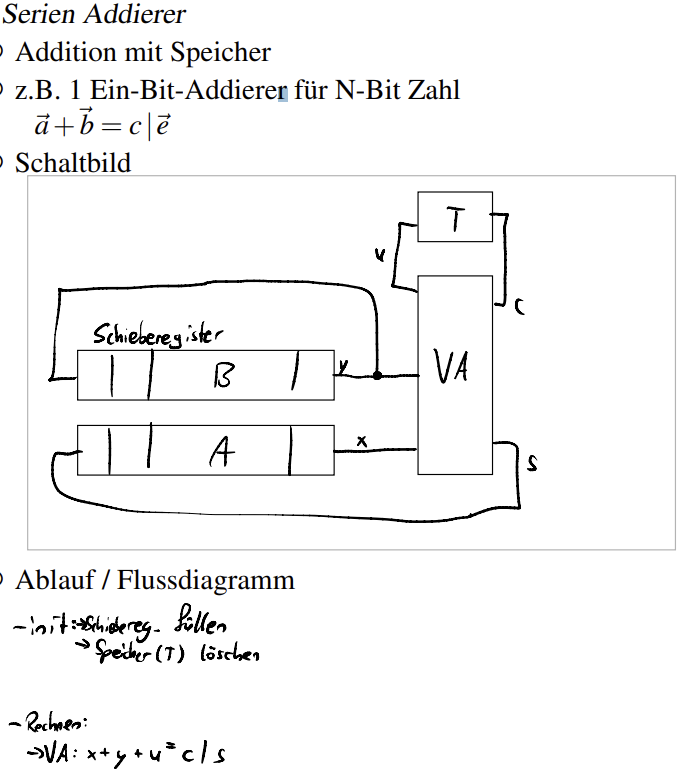 Serien Addierer
Addition mit Speicher
z.B. 1 Ein-Bit-Addierer für N-Bit Zahl
a⃗ + b⃗ = c | e⃗
Schaltbild
T
u
c
Schieberegister
B
y
VA
A
x
s
Ablauf / Flussdiagramm
- init: → Schiebereg. füllen
→ Speicher (T) löschen
- Rechnen:
→ VA: x + y + u = c / s